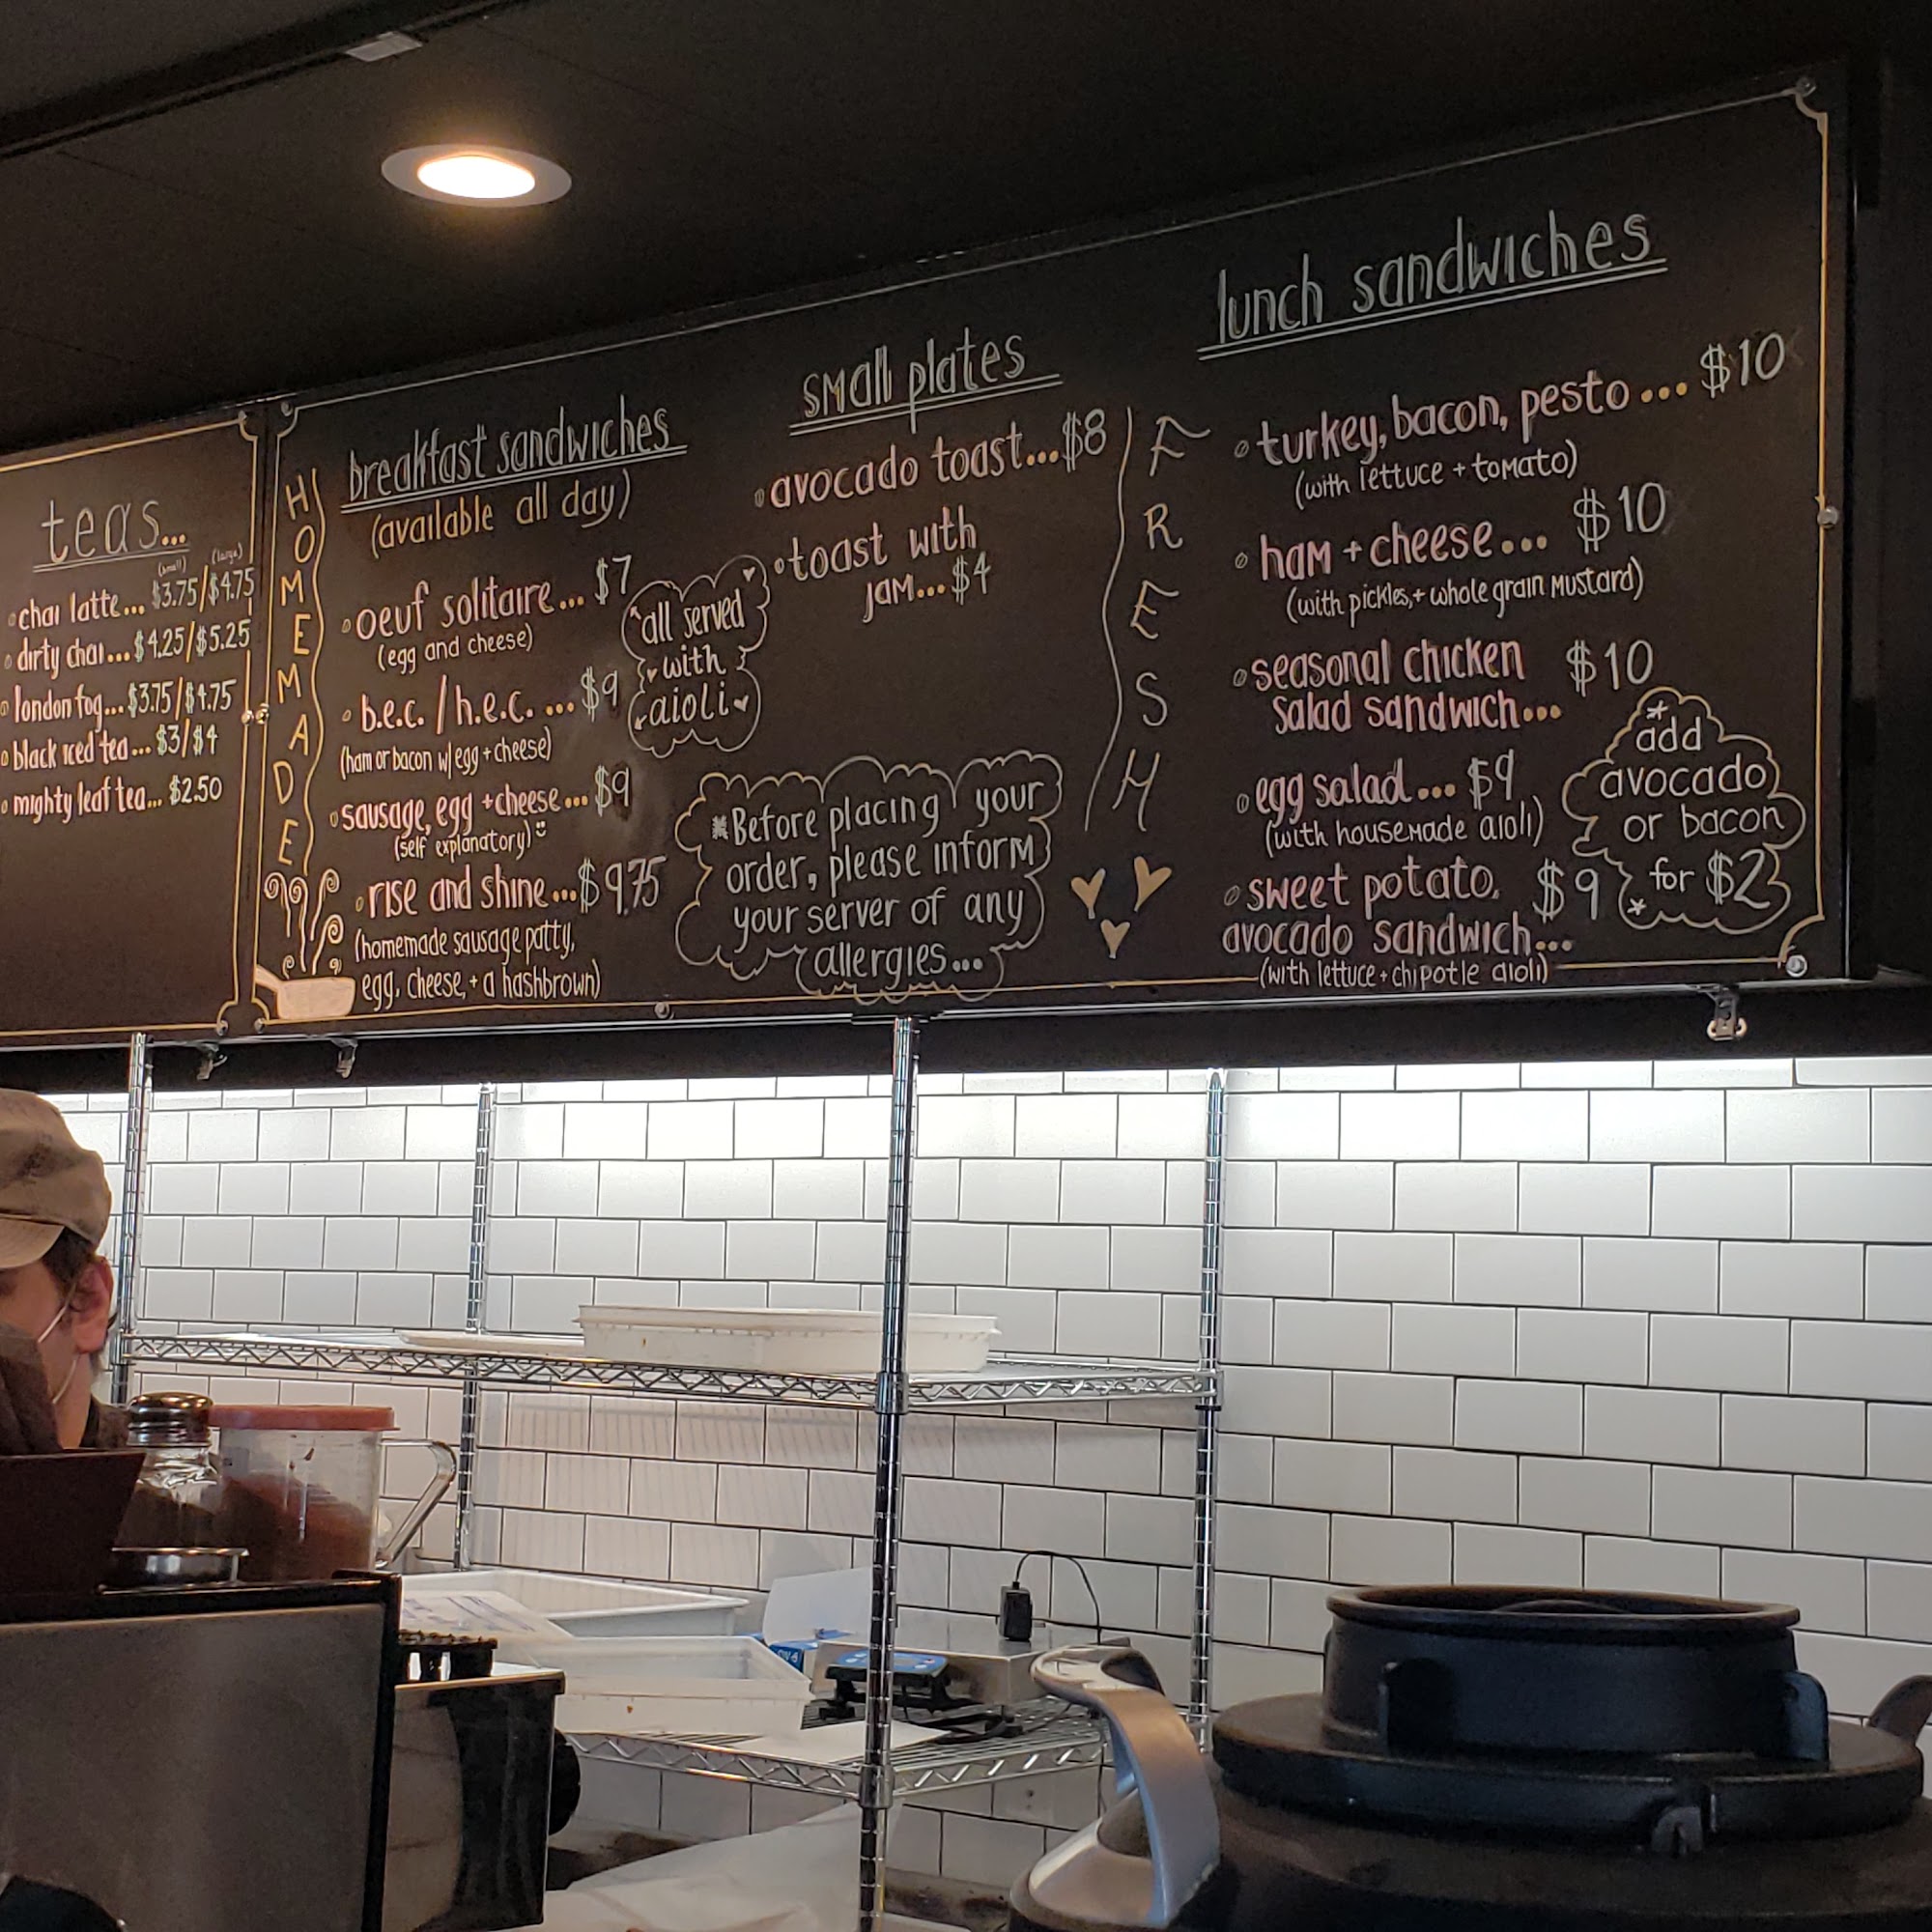 teas...
(small) (large)
chai latte... $3.75/$4.75
dirty chai... $4.25/$5.25
london fog... $3.75/$4.75
black iced tea... $3/$4
mighty leaf tea... $2.50
HOMEMADE
breakfast sandwiches
(available all day)
oeuf solitaire... $7
(egg and cheese)
b.e.c. / h.e.c. ... $9
(ham or bacon w/ egg + cheese)
sausage, egg + cheese... $9
(self explanatory)
rise and shine... $9.75
(homemade sausage patty,
egg, cheese, + a hashbrown)
all served
with
aioli
small plates
avocado toast... $8
toast with
jam... $4
*Before placing your
order, please inform
your server of any
allergies...
FRESH
lunch sandwiches
turkey, bacon, pesto... $10
(with lettuce + tomato)
ham + cheese... $10
(with pickles, + whole grain mustard)
seasonal chicken $10
salad sandwich...
egg salad... $9
(with housemade aioli)
sweet potato, $9
avocado sandwich...
(with lettuce + chipotle aioli)
*
add
avocado
or bacon
for $2
*